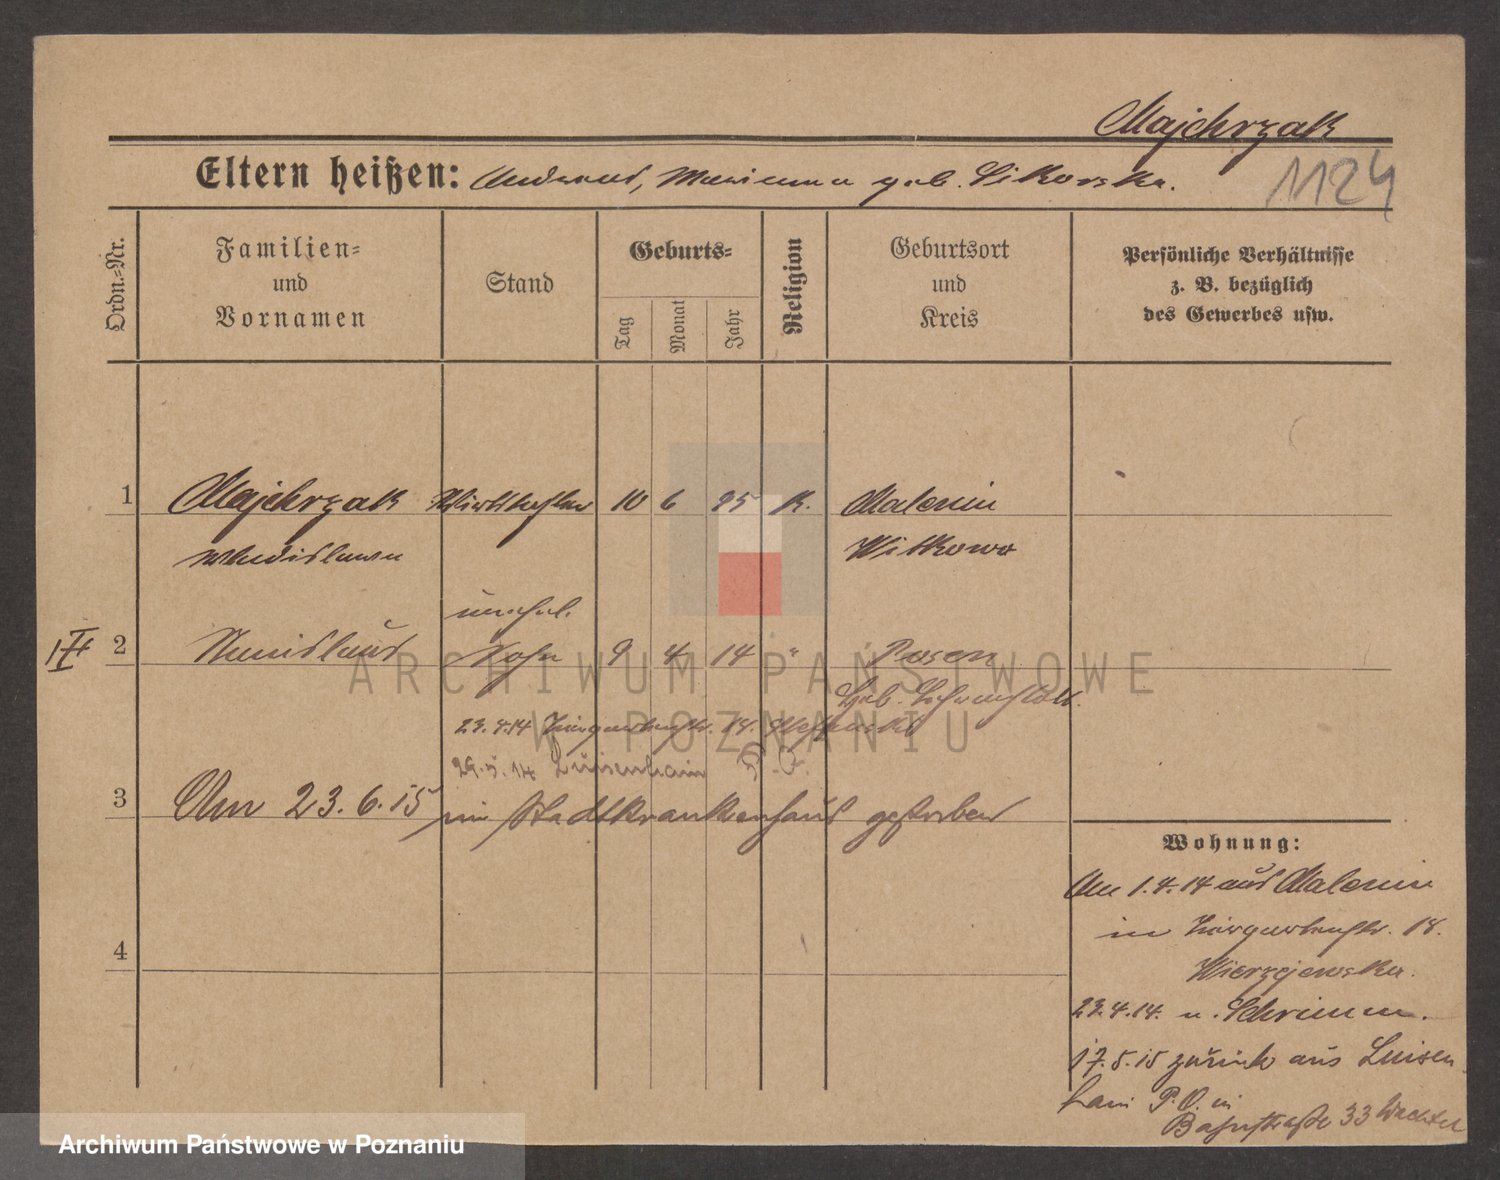 Majchrzak
Eltern heißen: Andreas, Marianna geb. Sikorska.
1124
Ordn.=Nr.
Familien=
und
Vornamen
Stand
Geburts=
Tag
Monat
Jahr
Religion
Geburtsort
und
Kreis
Persönliche Verhältnisse
z. B. bezüglich
des Gewerbes usw.
1 Majchrzak 10 6 95 K. Malenin
Wladislawa Witkowo
unehel.
2 Stanislaus Sohn 9 4 14 " Posen
Geb.
23.4.14 18.
29.5.14 Luisenhain P. O.
3 Am 23.6.15 im Stadtkrankenhaus gestorben
4
Wohnung:
Am 1.4.14 aus Malenin
in 18.
Wierzejewska.
23.4.14. n. Schrimm.
17.5.15 zurück aus Luisen
hain P. O. in
Bahnstraße 33
ARCHIWUM PAŃSTWOWE
W POZNANIU
Archiwum Państwowe w Poznaniu